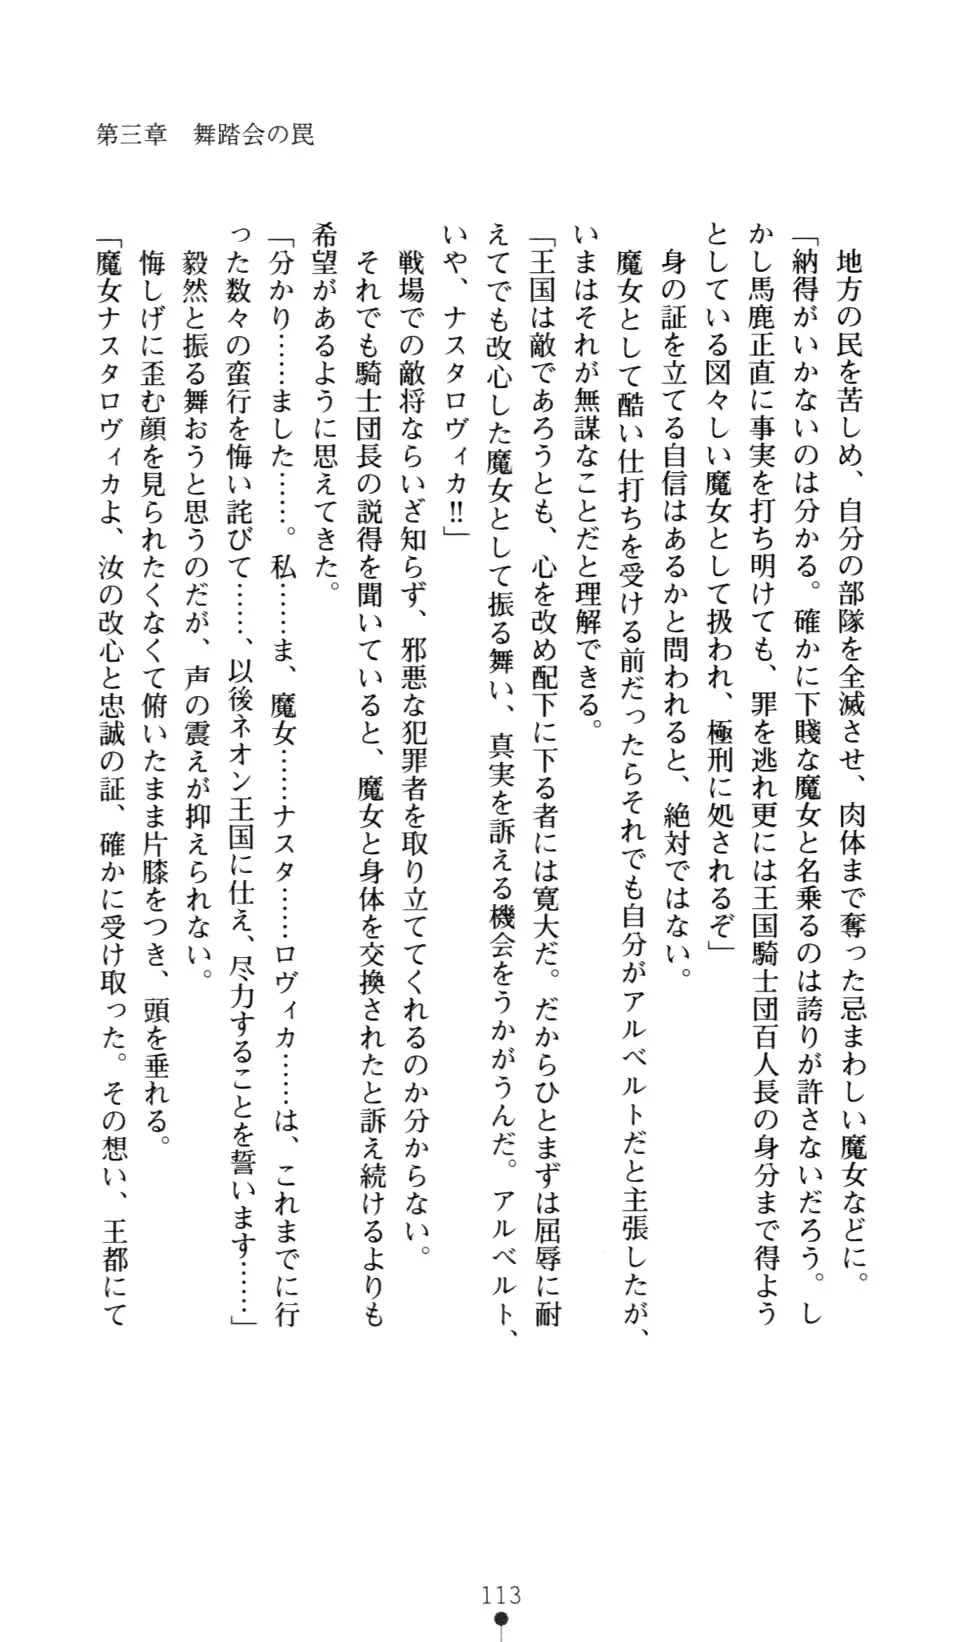 第三章　舞踏会の罠
　地方の民を苦しめ、自分の部隊を全滅させ、肉体まで奪った忌まわしい魔女などに。
「納得がいかないのは分かる。確かに下賤な魔女と名乗るのは誇りが許さないだろう。し
かし馬鹿正直に事実を打ち明けても、罪を逃れ更には王国騎士団百人長の身分まで得よう
としている図々しい魔女として扱われ、極刑に処されるぞ」
　身の証を立てる自信はあるかと問われると、絶対ではない。
　魔女として酷い仕打ちを受ける前だったらそれでも自分がアルベルトだと主張したが、
いまはそれが無謀なことだと理解できる。
「王国は敵であろうとも、心を改め配下に下る者には寛大だ。だからひとまずは屈辱に耐
えてでも改心した魔女として振る舞い、真実を訴える機会をうかがうんだ。アルベルト、
いや、ナスタロヴィカ!!」
　戦場での敵将ならいざ知らず、邪悪な犯罪者を取り立ててくれるのか分からない。
　それでも騎士団長の説得を聞いていると、魔女と身体を交換されたと訴え続けるよりも
希望があるように思えてきた。
「分かり……ました……。私……ま、魔女……ナスタ……ロヴィカ……は、これまでに行
った数々の蛮行を悔い詫びて……、以後ネオン王国に仕え、尽力することを誓います……」
　毅然と振る舞おうと思うのだが、声の震えが抑えられない。
　悔しげに歪む顔を見られたくなくて俯いたまま片膝をつき、頭を垂れる。
「魔女ナスタロヴィカよ、汝の改心と忠誠の証、確かに受け取った。その想い、王都にて
113